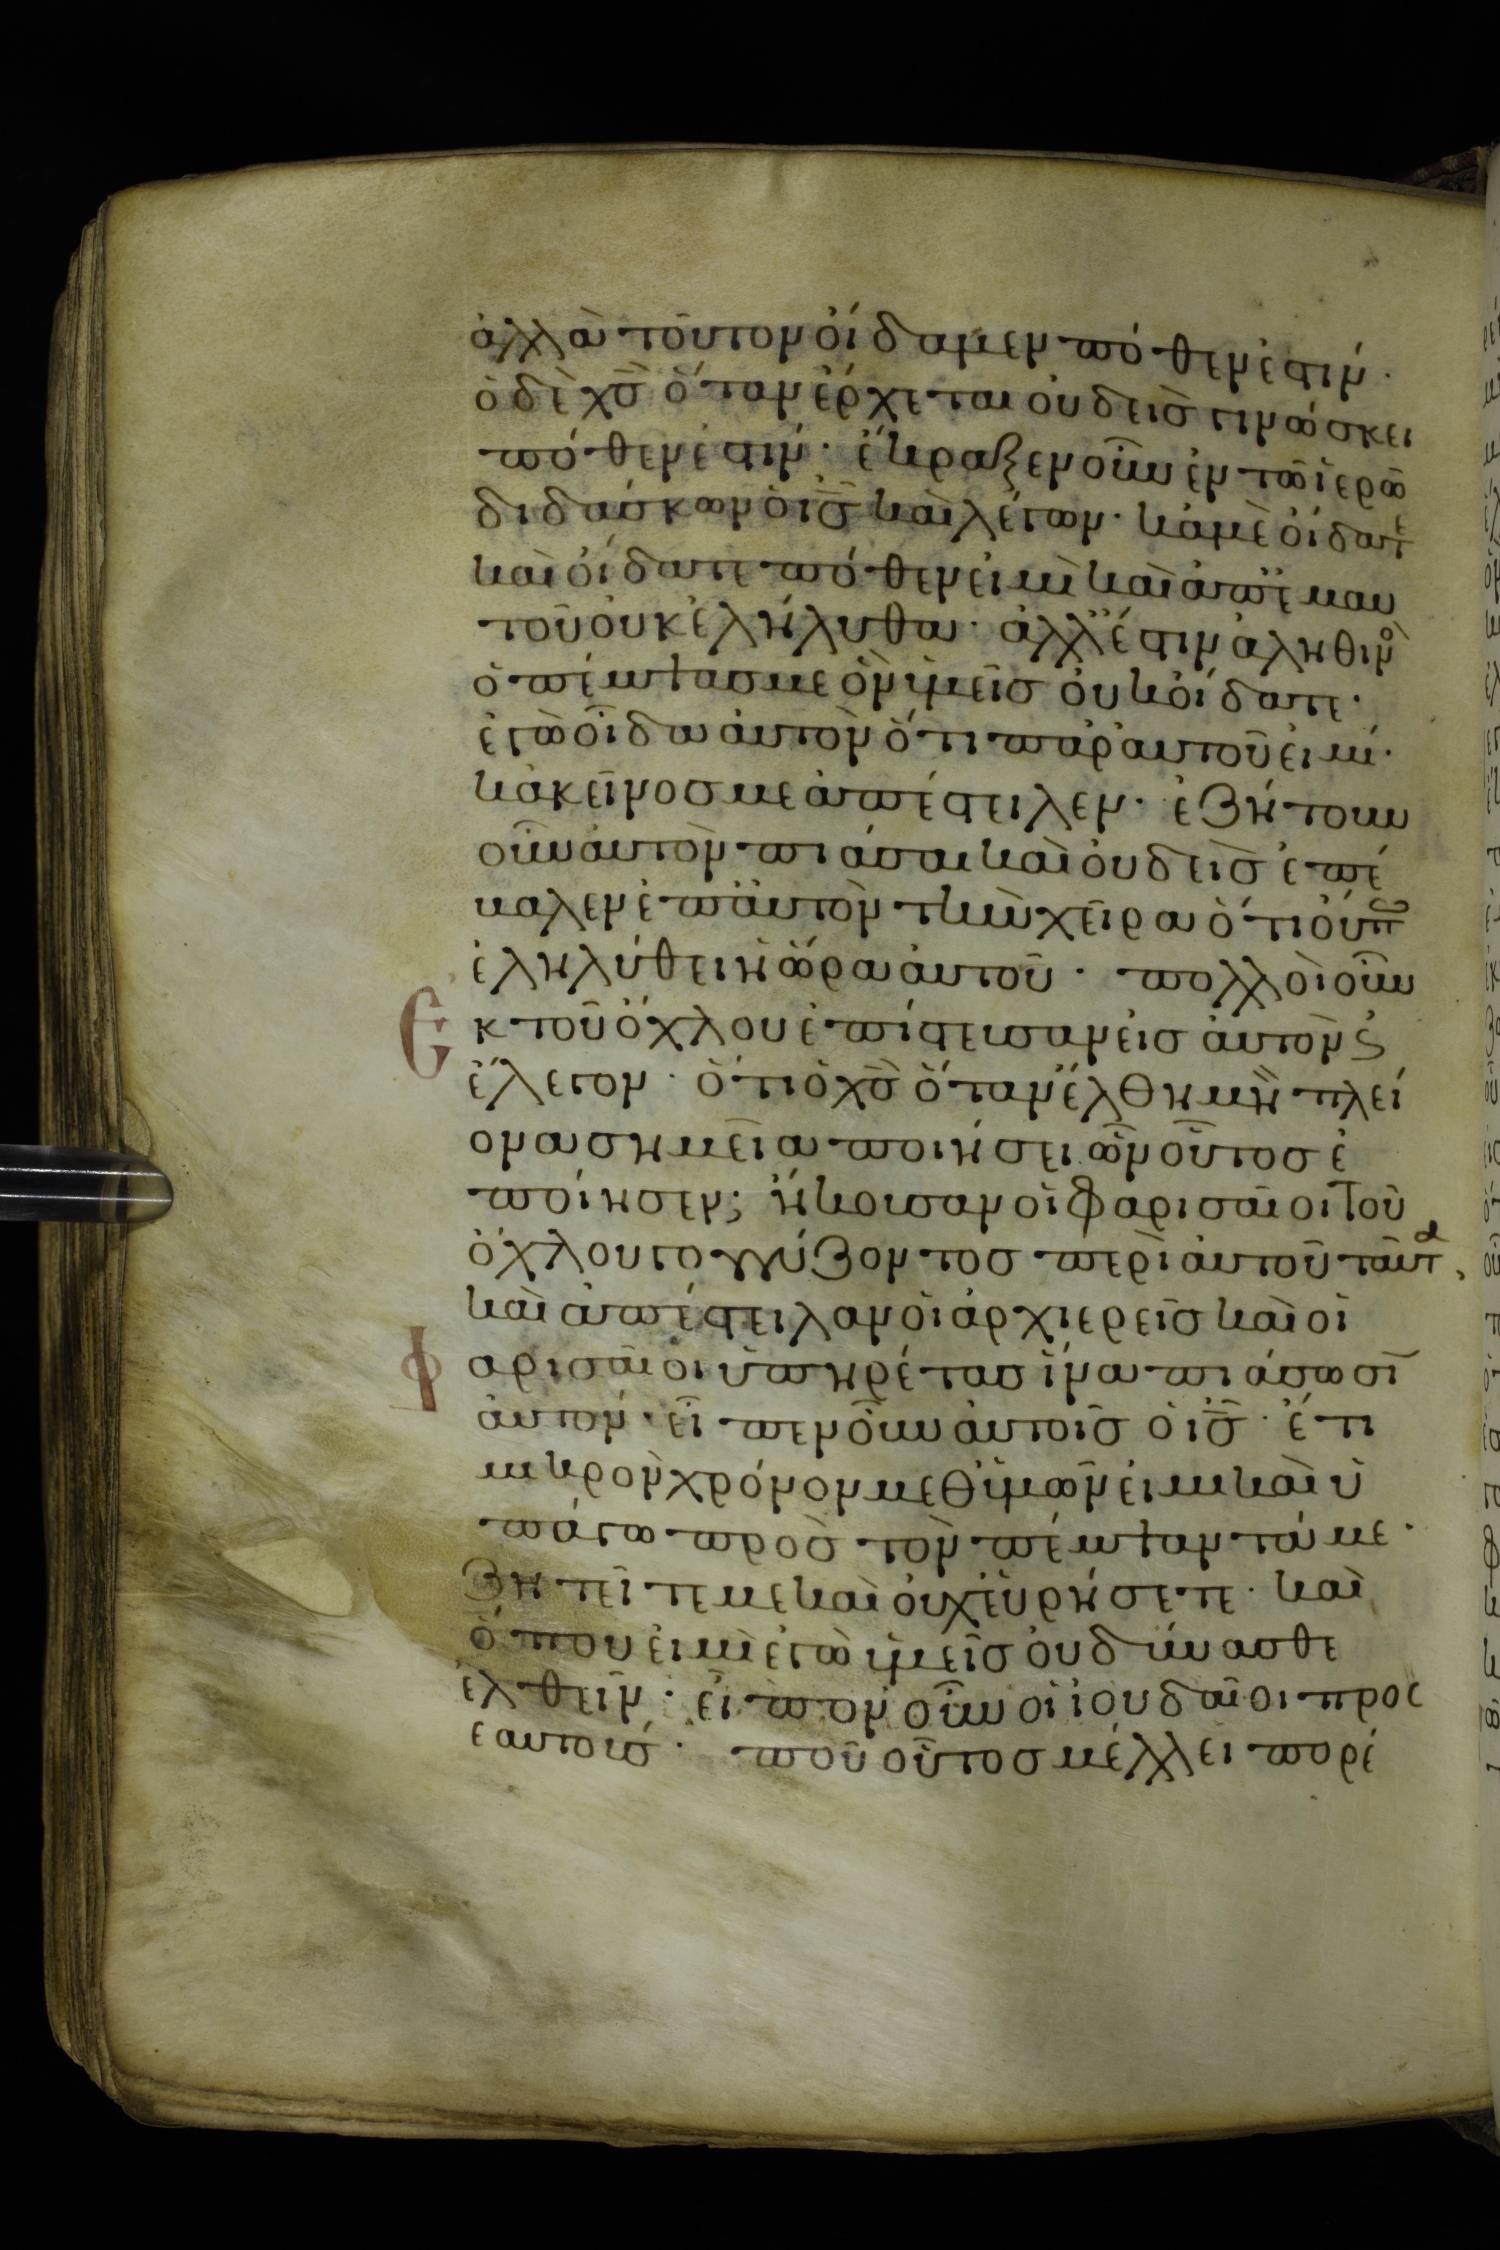 ἀλλὰ τοῦτον οἴδαμεν πόθεν ἐστίν·
ὁ δὲ χ̅ς̅ ὅταν ἔρχεται οὐδεὶς γινώσκει
πόθεν ἐστίν· ἔκραξεν οὖν ἐν τῶ ἱερῶ
διδάσκων ὁ ι̅ς̅ καὶ λέγων· κἀμὲ οἴδατε
καὶ οἴδατε πόθεν εἰμὶ καὶ ἀπ' ἐμαυ
τοῦ οὐκ ἐλήλυθα· ἀλλ' ἔστιν ἀληθινὸ
ὁ πέμψας με ὃν ὑμεῖς οὐκ οἴδατε·
ἐγὼ οἶδα αὐτὸν ὅτι παρ' αὐτοῦ εἰμί·
κἀκεῖνος με ἀπέστειλεν· ἐζήτουν
οὖν αὐτὸν πιάσαι καὶ οὐδεὶς ἐπέ
βαλεν ἐπ' αὐτὸν τὴν χεῖρα ὅτι οὔπω
ἐληλύθει ἡ ὥρα αὐτοῦ· πολλοὶ οὖν
Ἐκ τοῦ ὄχλου ἐπίστευσαν εἰς αὐτὸν ϗ
ἔλεγον· ὅτι ὁ χ̅ς̅ ὅταν ἔλθη μὴ πλεί
ονα σημεῖα ποιήσει ὧν οὗτος ἐ
ποίησεν; ἤκουσαν οἱ φαρισαῖοι τοῦ
ὄχλου γογγύζοντος περὶ αὐτοῦ ταῦτα,
καὶ ἀπέστειλαν οἱ ἀρχιερεῖς καὶ οἱ
Φαρισαῖοι ὑπηρέτας ἵνα πιάσωσῑ
αὐτόν· εἶπεν οὖν αὐτοῖς ὁ ι̅ς̅· ἔτι
μικρὸν χρόνον μεθ' ὑμῶν εἰμι καὶ ὑ
πάγω πρὸς τὸν πέμψαντά με·
ζητεῖτέ με καὶ οὐχ εὑρήσετε· καὶ
ὅπου εἰμὶ ἐγὼ ὑμεῖς οὐ δύνασθε
ἐλθεῖν· εἶπον οὖν οἱ ἰουδαῖοι πρὸς
ἑαυτούς· ποῦ οὗτος μέλλει πορέ